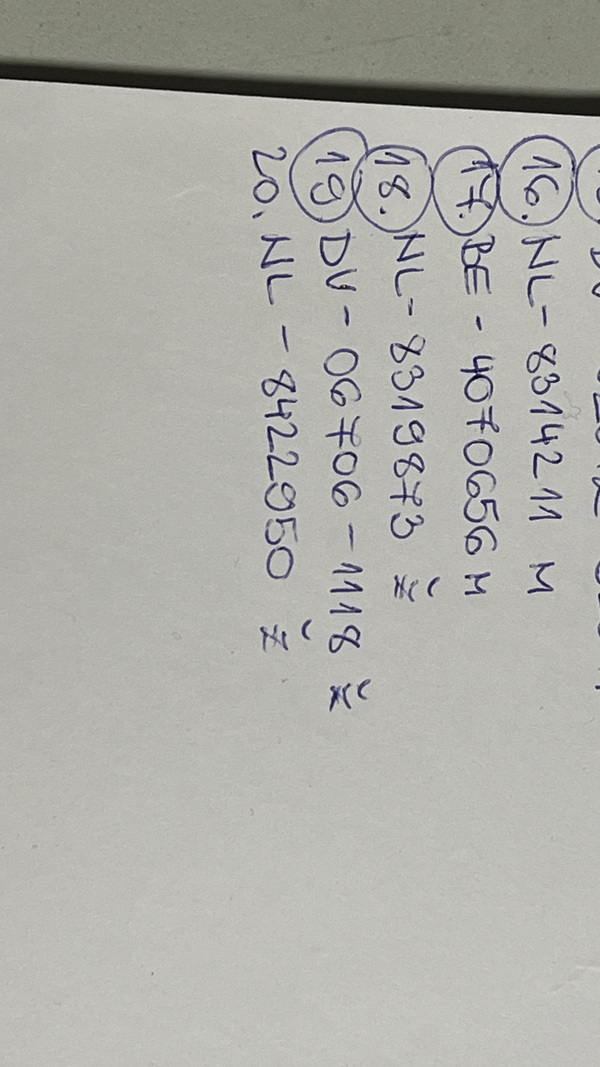 16. NL - 8314211 M
17. BE - 4070656 M
18. NL - 8319873 Ž
19 DV - 06706 - 1118 Ž
20. NL - 8422950 Ž